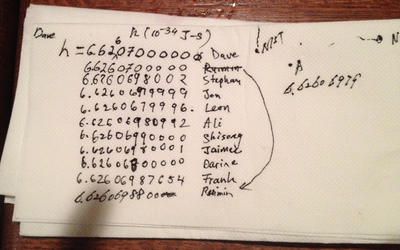 Dave h (10^-34 J-s)
h = 6.62607000000 Dave
6.62607000000 Ruimin
6.6260698002 Stephan
6.62606979999 Jon
6.62606799996 Leon
6.62606980992 Ali
6.62606990000 Shisong
6.62606980001 Jaimex
6.62606800000 Darine
6.62606987654 Frank
6.626069880 Ruimin
NIST
N
A
6.62606979